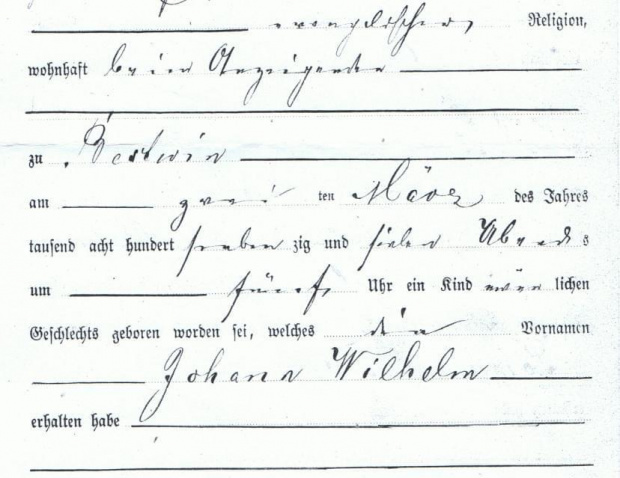 evangelischer Religion,
wohnhaft beim Anzeigenden
zu
am zwei ten März des Jahres
tausend acht hundert sieben zig und sieben Abends
um fünf Uhr ein Kind männ lichen
Geschlechts geboren worden sei, welches die Vornamen
Johann Wilhelm
erhalten habe